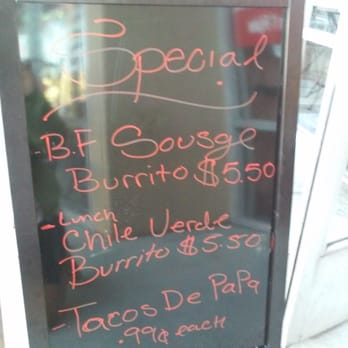 Special
- B.F Sousge
Burrito $5.50
- Lunch
Chile Verde
Burrito $5.50
- Tacos De PaPa
.99¢ each